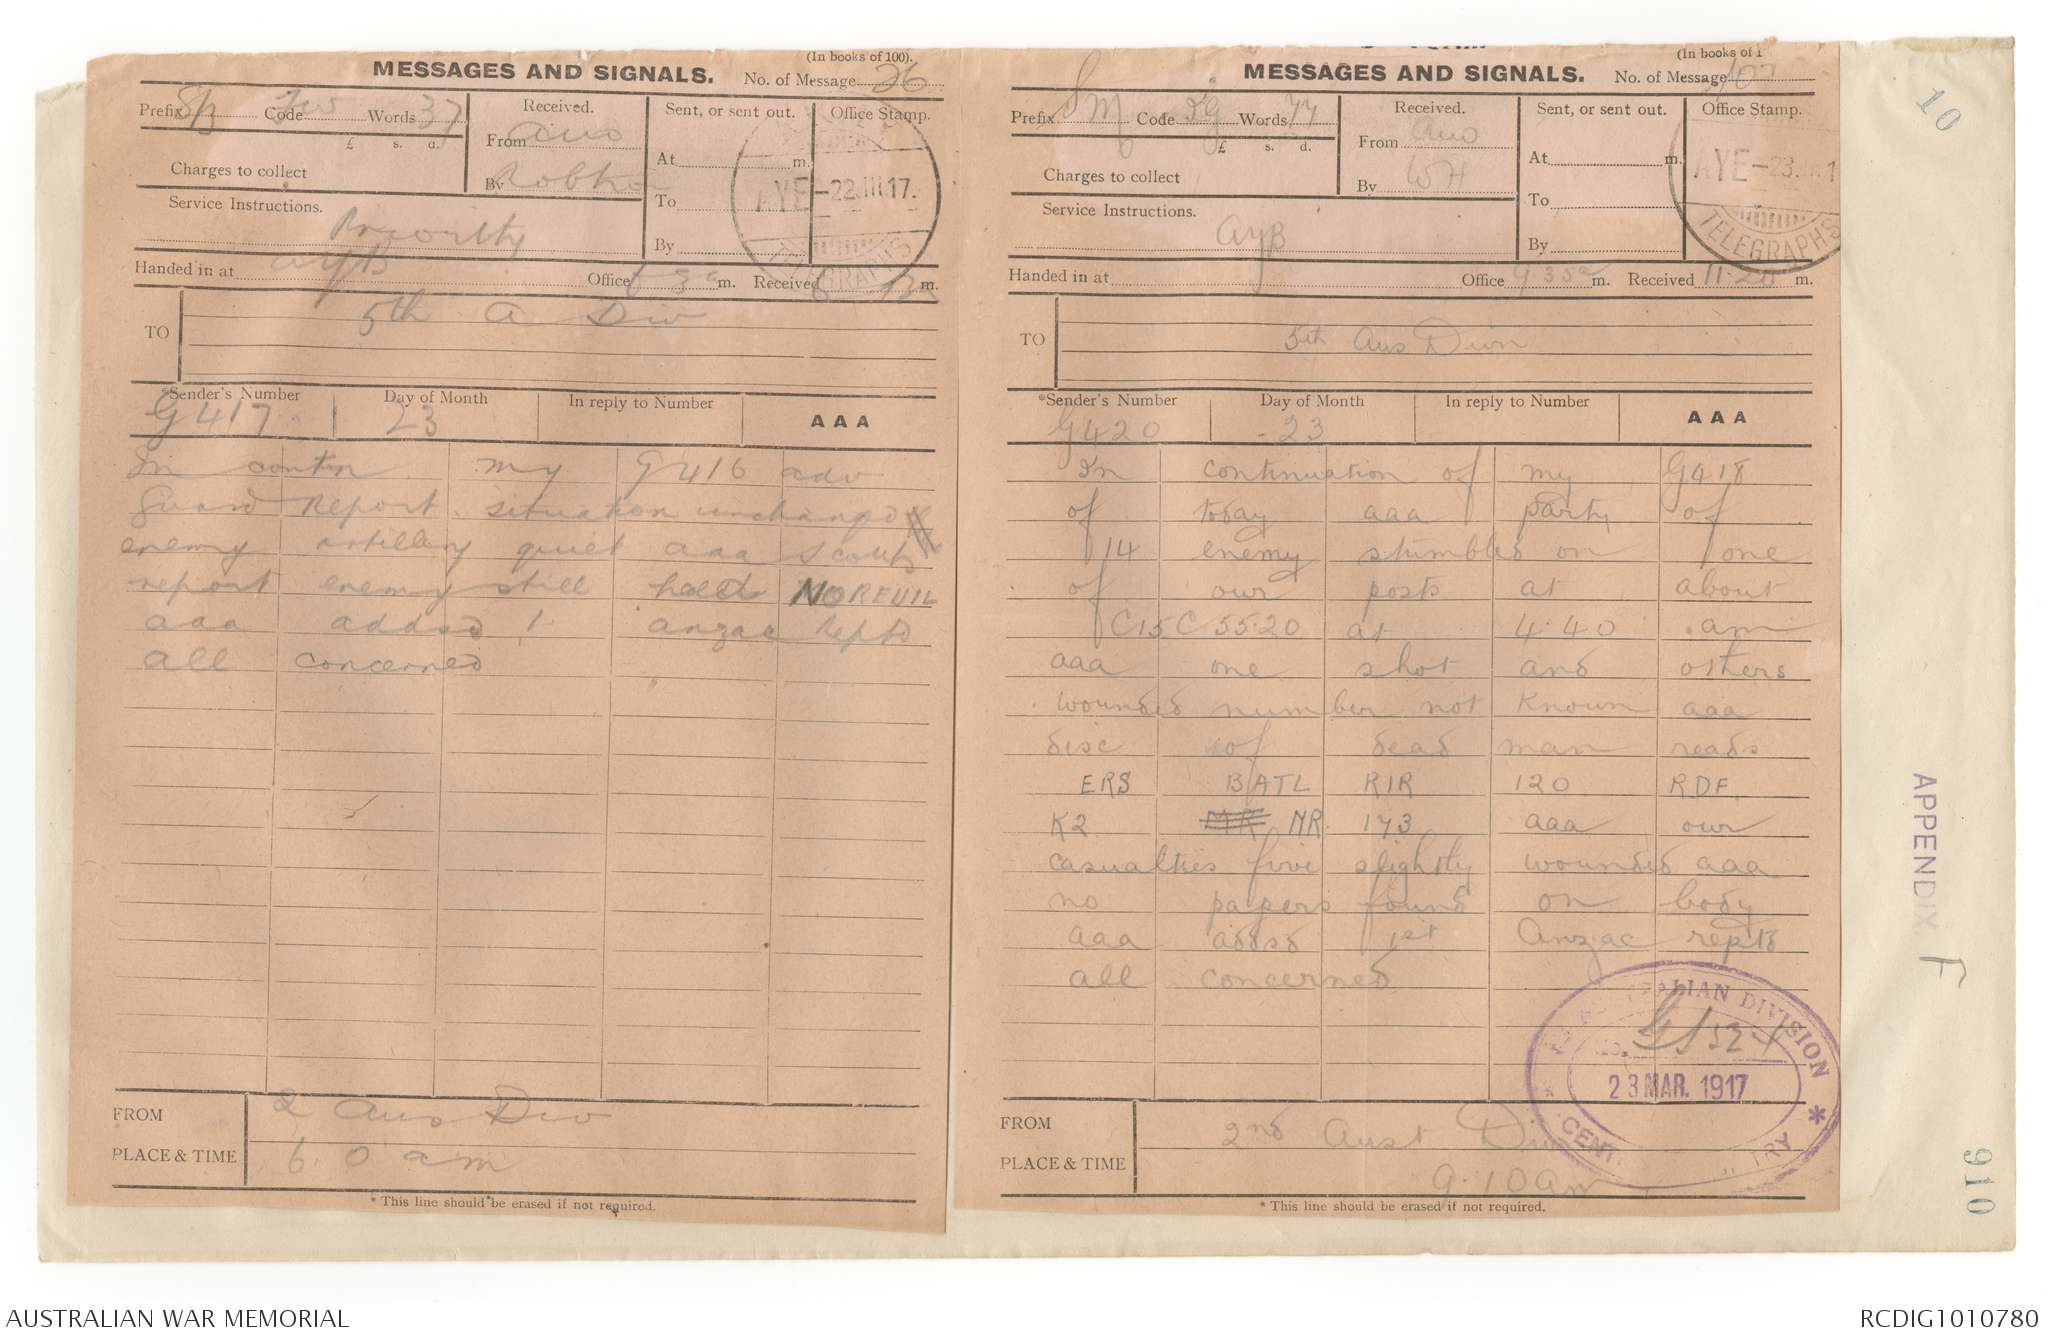 (In books of 100).
MESSAGES AND SIGNALS.
No. of Message 36
Prefix SB Code Words 37
Received.
Sent, or sent out.
Office Stamp.
£ s. d.
From
At m.
Charges to collect
By
To
AYE -22.III.17.
Service Instructions.
Priority
By
TELEGRAPHS
AYB
Handed in at Office 6 3a m. Received m.
TO 5th A Div
*Sender's Number
Day of Month
In reply to Number
AAA
G417
23
In contn my G416 adv
Guard Report situation unchanged
enemy artillery quiet aaa scouts
report enemy still holds NOREUIL
aaa addsd 1 anzac reptd
all concerned
FROM 2 Aus Div
PLACE & TIME 6.0 am
* This line should be erased if not required.
(In books of 1
MESSAGES AND SIGNALS.
No. of Message 107
Prefix SM Code Words 77
Received.
Sent, or sent out.
Office Stamp.
£ s. d.
From
At m.
Charges to collect
By WH
To
AYE -23.III.1
Service Instructions.
AYB
By
TELEGRAPHS
Handed in at Office 9.35a m. Received 11-20 m.
TO 5th Aus Divn
*Sender's Number
Day of Month
In reply to Number
AAA
G420
23
In continuation of my G418
of today aaa party of
14 enemy stumbled on one
of our posts at about
C15C 55.20 at 4.40 am
aaa one shot and others
wounded number not known aaa
disc of dead man reads
ERS BATL RIR 120 RDF.
K2 NR. 173 aaa our
casualties five slightly wounded aaa
no papers found on body
aaa addsd 1st Anzac reptd
all concerned
ALIAN DIVISION
23 MAR. 1917
FROM 2nd Aust Div
PLACE & TIME 9.10am
* This line should be erased if not required.
10
APPENDIX F
910
AUSTRALIAN WAR MEMORIAL
RCDIG1010780